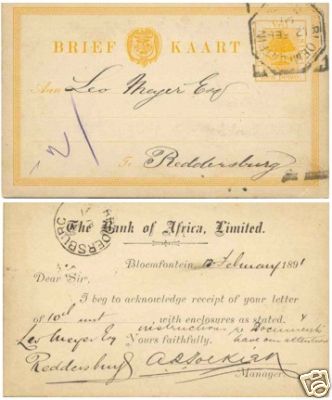 BRIEF KAART
Aan Leo Meyer Esq
To Reddersburg
21
The Bank of Africa, Limited.
REDDERSBURG
Bloemfontein 12 February 1891
Dear Sir,
I beg to acknowledge receipt of your letter
of 10th inst with enclosures as stated. &
instructions re Documents
Leo Meyer Esq Yours faithfully. have our attention
Reddersburg
Manager.
eBay